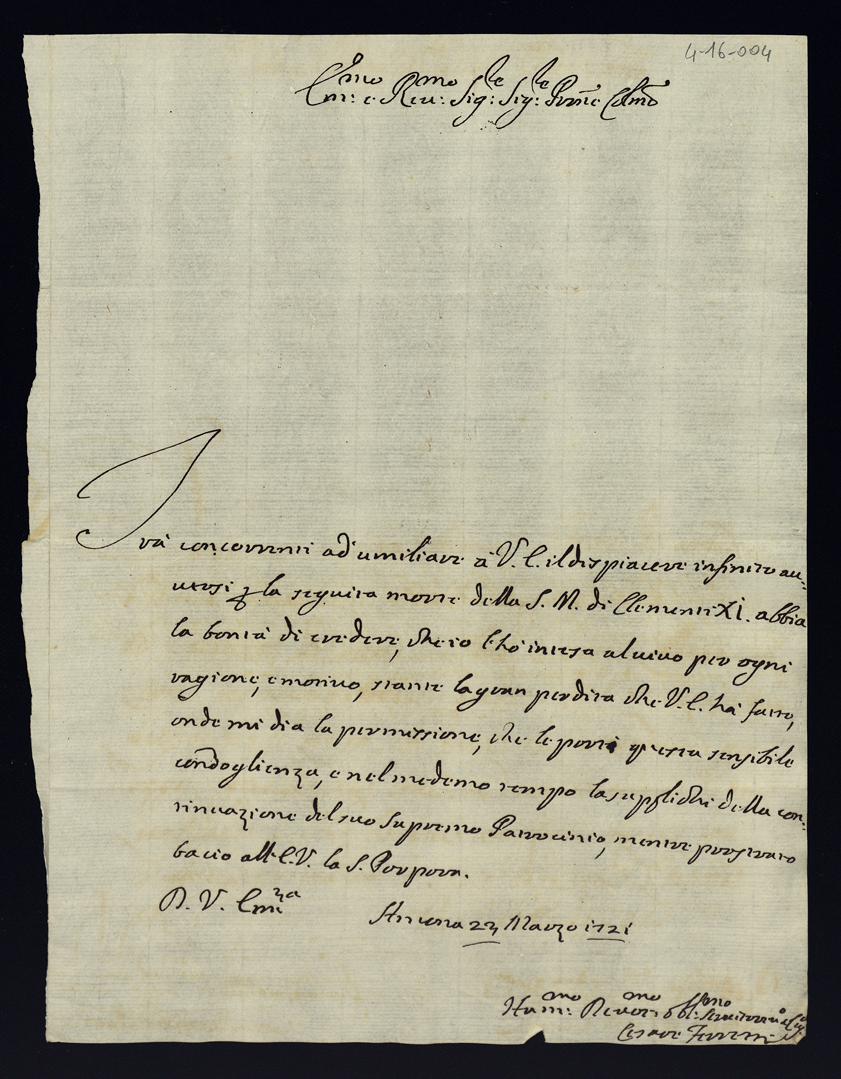 4-16-004
Em:mo e Reu:mo Sig:re Sig:re Prone Colmo
Frà concorrenti ad umiliare à V. E. il dispiacere infinito au=
utosi per la seguita morte della S. M. di Clemente XI. abbia
la bontà di credere, che io l'hò intesa al uiuo per ogni
ragione, e motiuo, stante la gran perdita che V. E. hà fatto,
onde mi dia la permissione, che le porti questa sensibile
condoglienza, e nel medemo tempo la supplichi della con=
tinuazione del suo Supremo Patrocinio, mentre prostrato
bacio all'E. V. la S. Porpora.
D. V. Em:za
Ancona 23 Marzo 1721
Hum:mo Deuot:mo obl:mo Seruitore
Cesare Ferretti